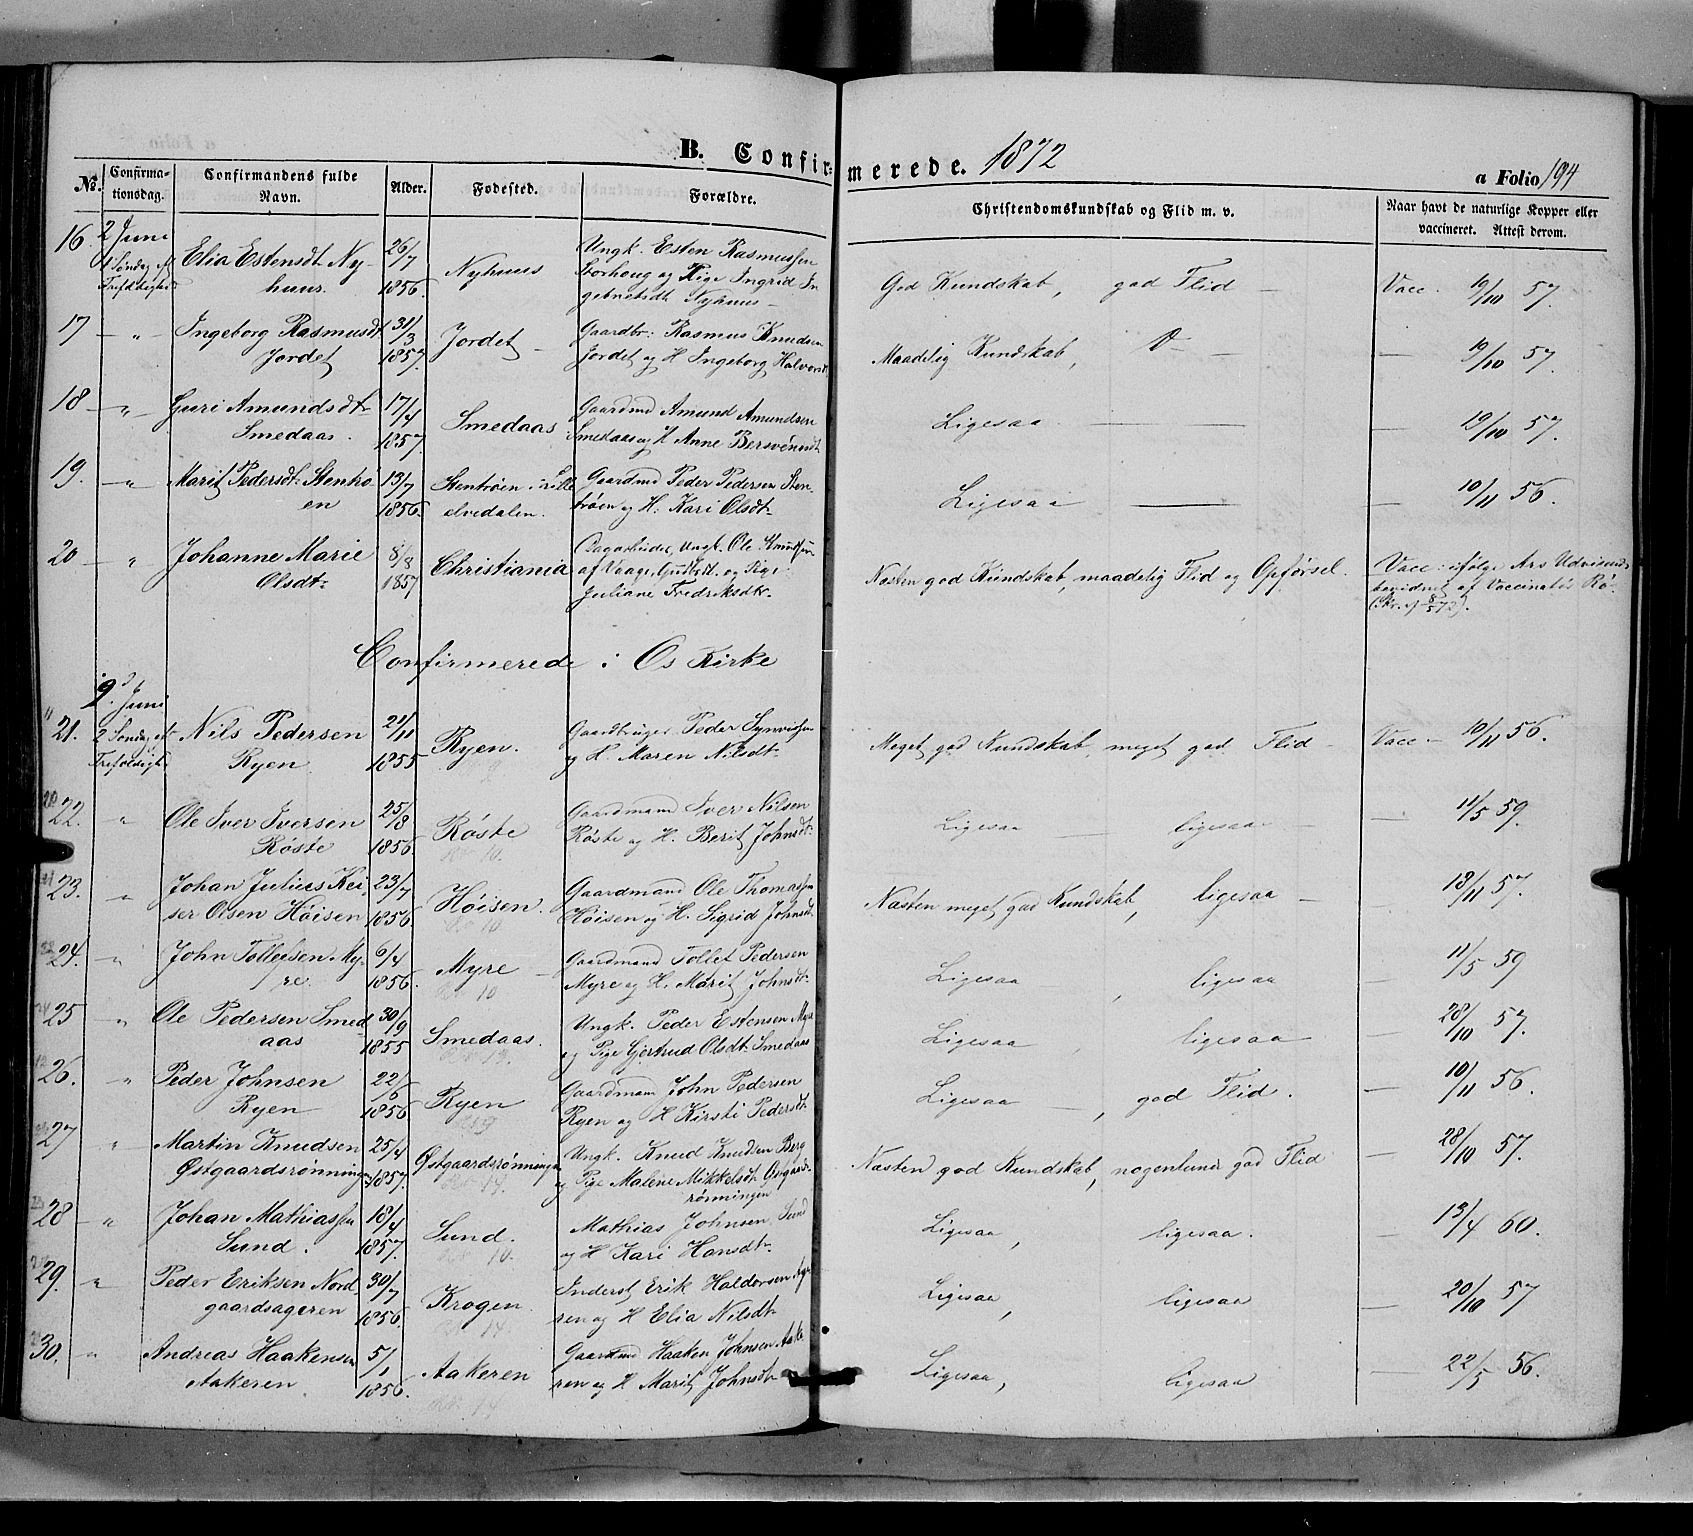 B. Confirmerede. 1872
a Folio 194
No. Confirmationsdag. Confirmandens fulde Navn. Alder. Fødested. Forældre. Christendomskundskab og Flid m. v. Naar havt de naturlige Kopper eller vaccineret. Attest derom.
16. 2 Juni Elia Estensdt. Ny- 26/7 Nyhuus Ungk. Esten Rasmussen
1 Søndag ef. Trefoldighed huus. 1856. Borhoug og Pige Ingrid In God Kundskab, god Flid — Vacc. 19/10 57.
gebretsdt Nyhuus —
17 — " — Ingeborg Rasmusdt 31/3 Jordet — Gaardbr: Rasmus Knudsen
Jordet 1857. Jordet og H. Ingeborg Halvorsdt Maadelig Kundskab, D — — 19/10 57.
18 — " — Guri Amundsdtr 17/4 Smedaas Gaardmd Amund Amundsen
Smedaas. 1857. Smedaas og H. Anne Bersvendsdt Ligesaa — — 19/10 57.
19. — " — Marit Pedersdt: Stenrø 13/7 Stentrøen i Lille Gaardmd Peder Pedersen Sten-
en 1856. elvedalen. trøen og H. Kari Olsdt- Ligesaa — — 10/11 56.
20 — " Johanne Marie 8/8 Christiania Dagarbeider, Ungk. Ole Knudsen
Olsdt- 1857 af Vaage, Gudbrdl. og Pige Næsten god Kundskab, maadelig Flid og Opførsel. Vacc: ifølge
Juliane Fredriksdtr. af Vaccinatør Rø-
Confirmerede i Os Kirke
9d Juni
21. 2 Søndag ef. Trefoldighd Nils Pedersen 21/11 Ryen. Gaardbruger Peder Synvissen
Ryen 1855 og H. Maren Nilsdt. Meget god Kundskab, meget god Flid — Vacc — 10/11 56.
22. " Ole Iver Iversen 25/8 Røste Gaardmand Iver Nilsen
Røste 1856. Røste og H. Berit Johnsdt. Ligesaa — ligesaa — 11/5 59.
23. " Johan Julius Kei 23/7 Høisen. Gaardmand Ole Thomassen
ser Olsen Høisen 1856. Høisen og H. Sigrid Johnsdt. Næsten meget god Kundskab, ligesaa — 18/11 57.
24. " John Tollefsen My- 6/4 Myre — Gaardmand Tollef Pedersen
re. 1856. Myre og H. Marit Johnsdt. Ligesaa, ligesaa — 11/5 59
25 " Ole Pedersen Smed 30/9 Smedaas. Ungk. Peder Estensen Myre
aas 1855 og Pige Gjertrud Olsdt. Smedaas Ligesaa, ligesaa — 28/10 57.
26. " Peder Johnsen 22/6 Ryen Gaardmand John Pedersen
Ryen 1856 Ryen og H. Kirsti Pedersdt. Ligesaa —, god Flid. — 10/11 56.
27 " Martin Knudsen 25/4 Østgaardsrønningen Ungk. Knud Knudsen Berg
Østgaardsrønningen 1857. og Pige Malene Mikkelsdt Østgaards-
rønningen Næsten god Kundskab, nogenlunde god Flid — 28/10 57.
28 — " Johan Mathiassen 18/4 Sund. Mathias Johnsen Sund
Sund. 1857. og H Kari Hansdt. Ligesaa, ligesaa. — 13/4 60.
29. " Peder Eriksen Nord 30/7 Krogen. Inderst Erik Haldorsen Age
gaardsageren 1856. ren og H Elia Nilsdt. Ligesaa, ligesaa — 20/10 57
30. " Andreas Haakensen 5/1 Aakeren Gaardmd Haaken Johnsen Aake
Aakeren 1856. ren og H Marit Johnsdt. Ligesaa, ligesaa — 22/5 56.